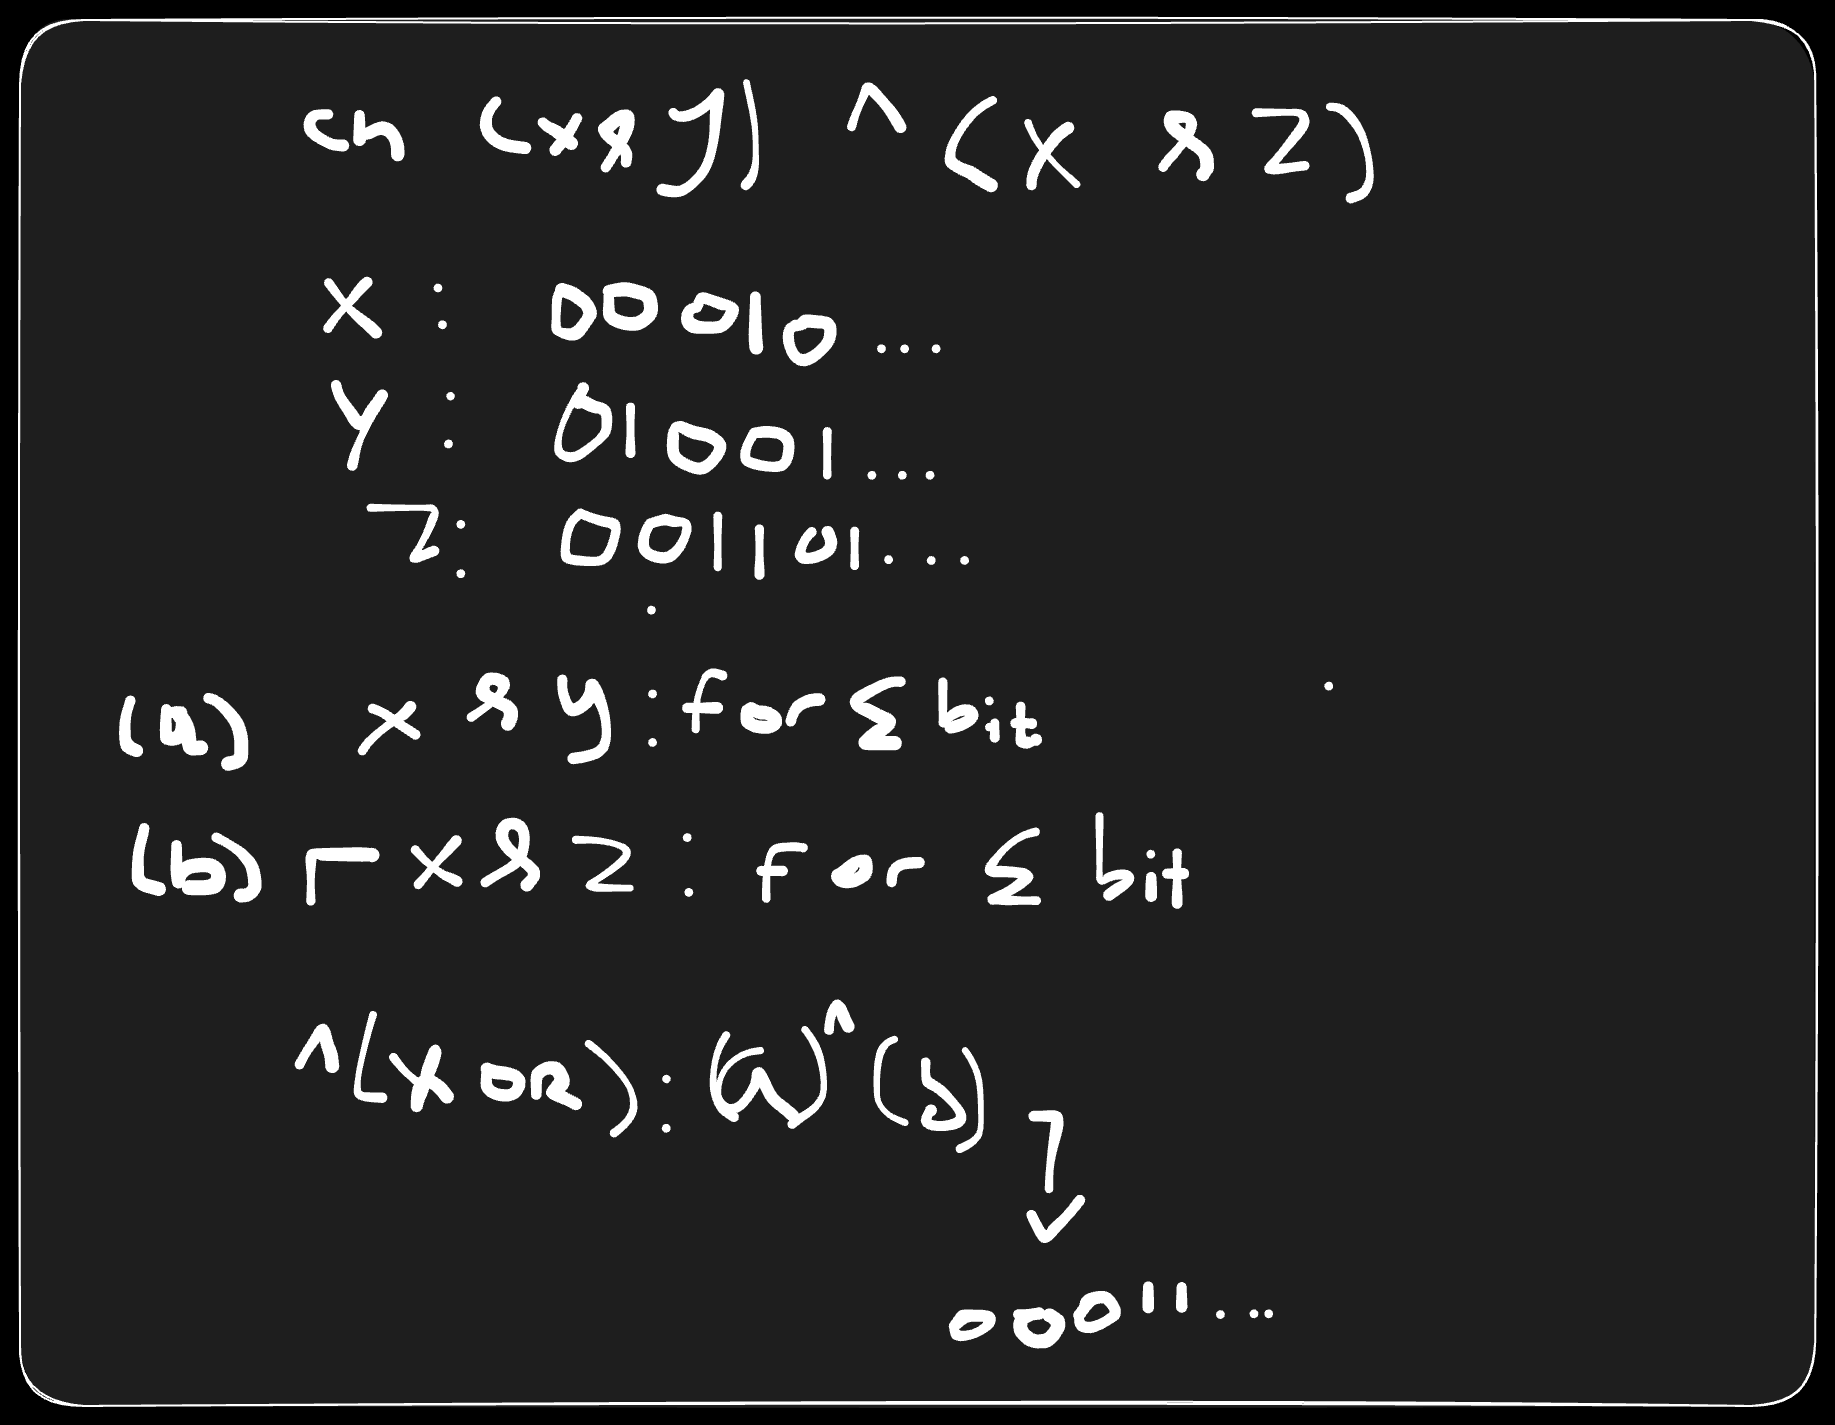 ch (x & y) ^ (x & z)
x : 00010...
y : 01001...
z: 001101...
(a) x & y : for Σ bit
(b) ┌ x & z : for Σ bit
^(XOR) : (a)^(b)
00011...